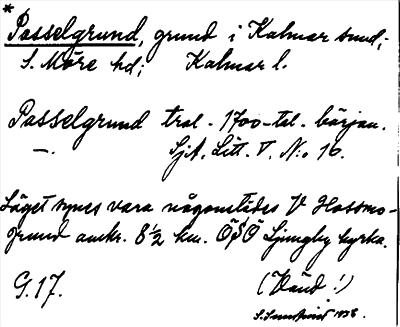 * Passelgrund, grund i Kalmar sund;
S. Möre hd; Kalmar l.
Passelgrund trol. 1700-tal. början.
—. SjA, Litt. V, N:o 16.
Läget synes vara någonstädes V Hossmo-
grund omkr. 8 ½ km. ÖSÖ Ljungby kyrka.
G. 17. (Vänd!)
1938